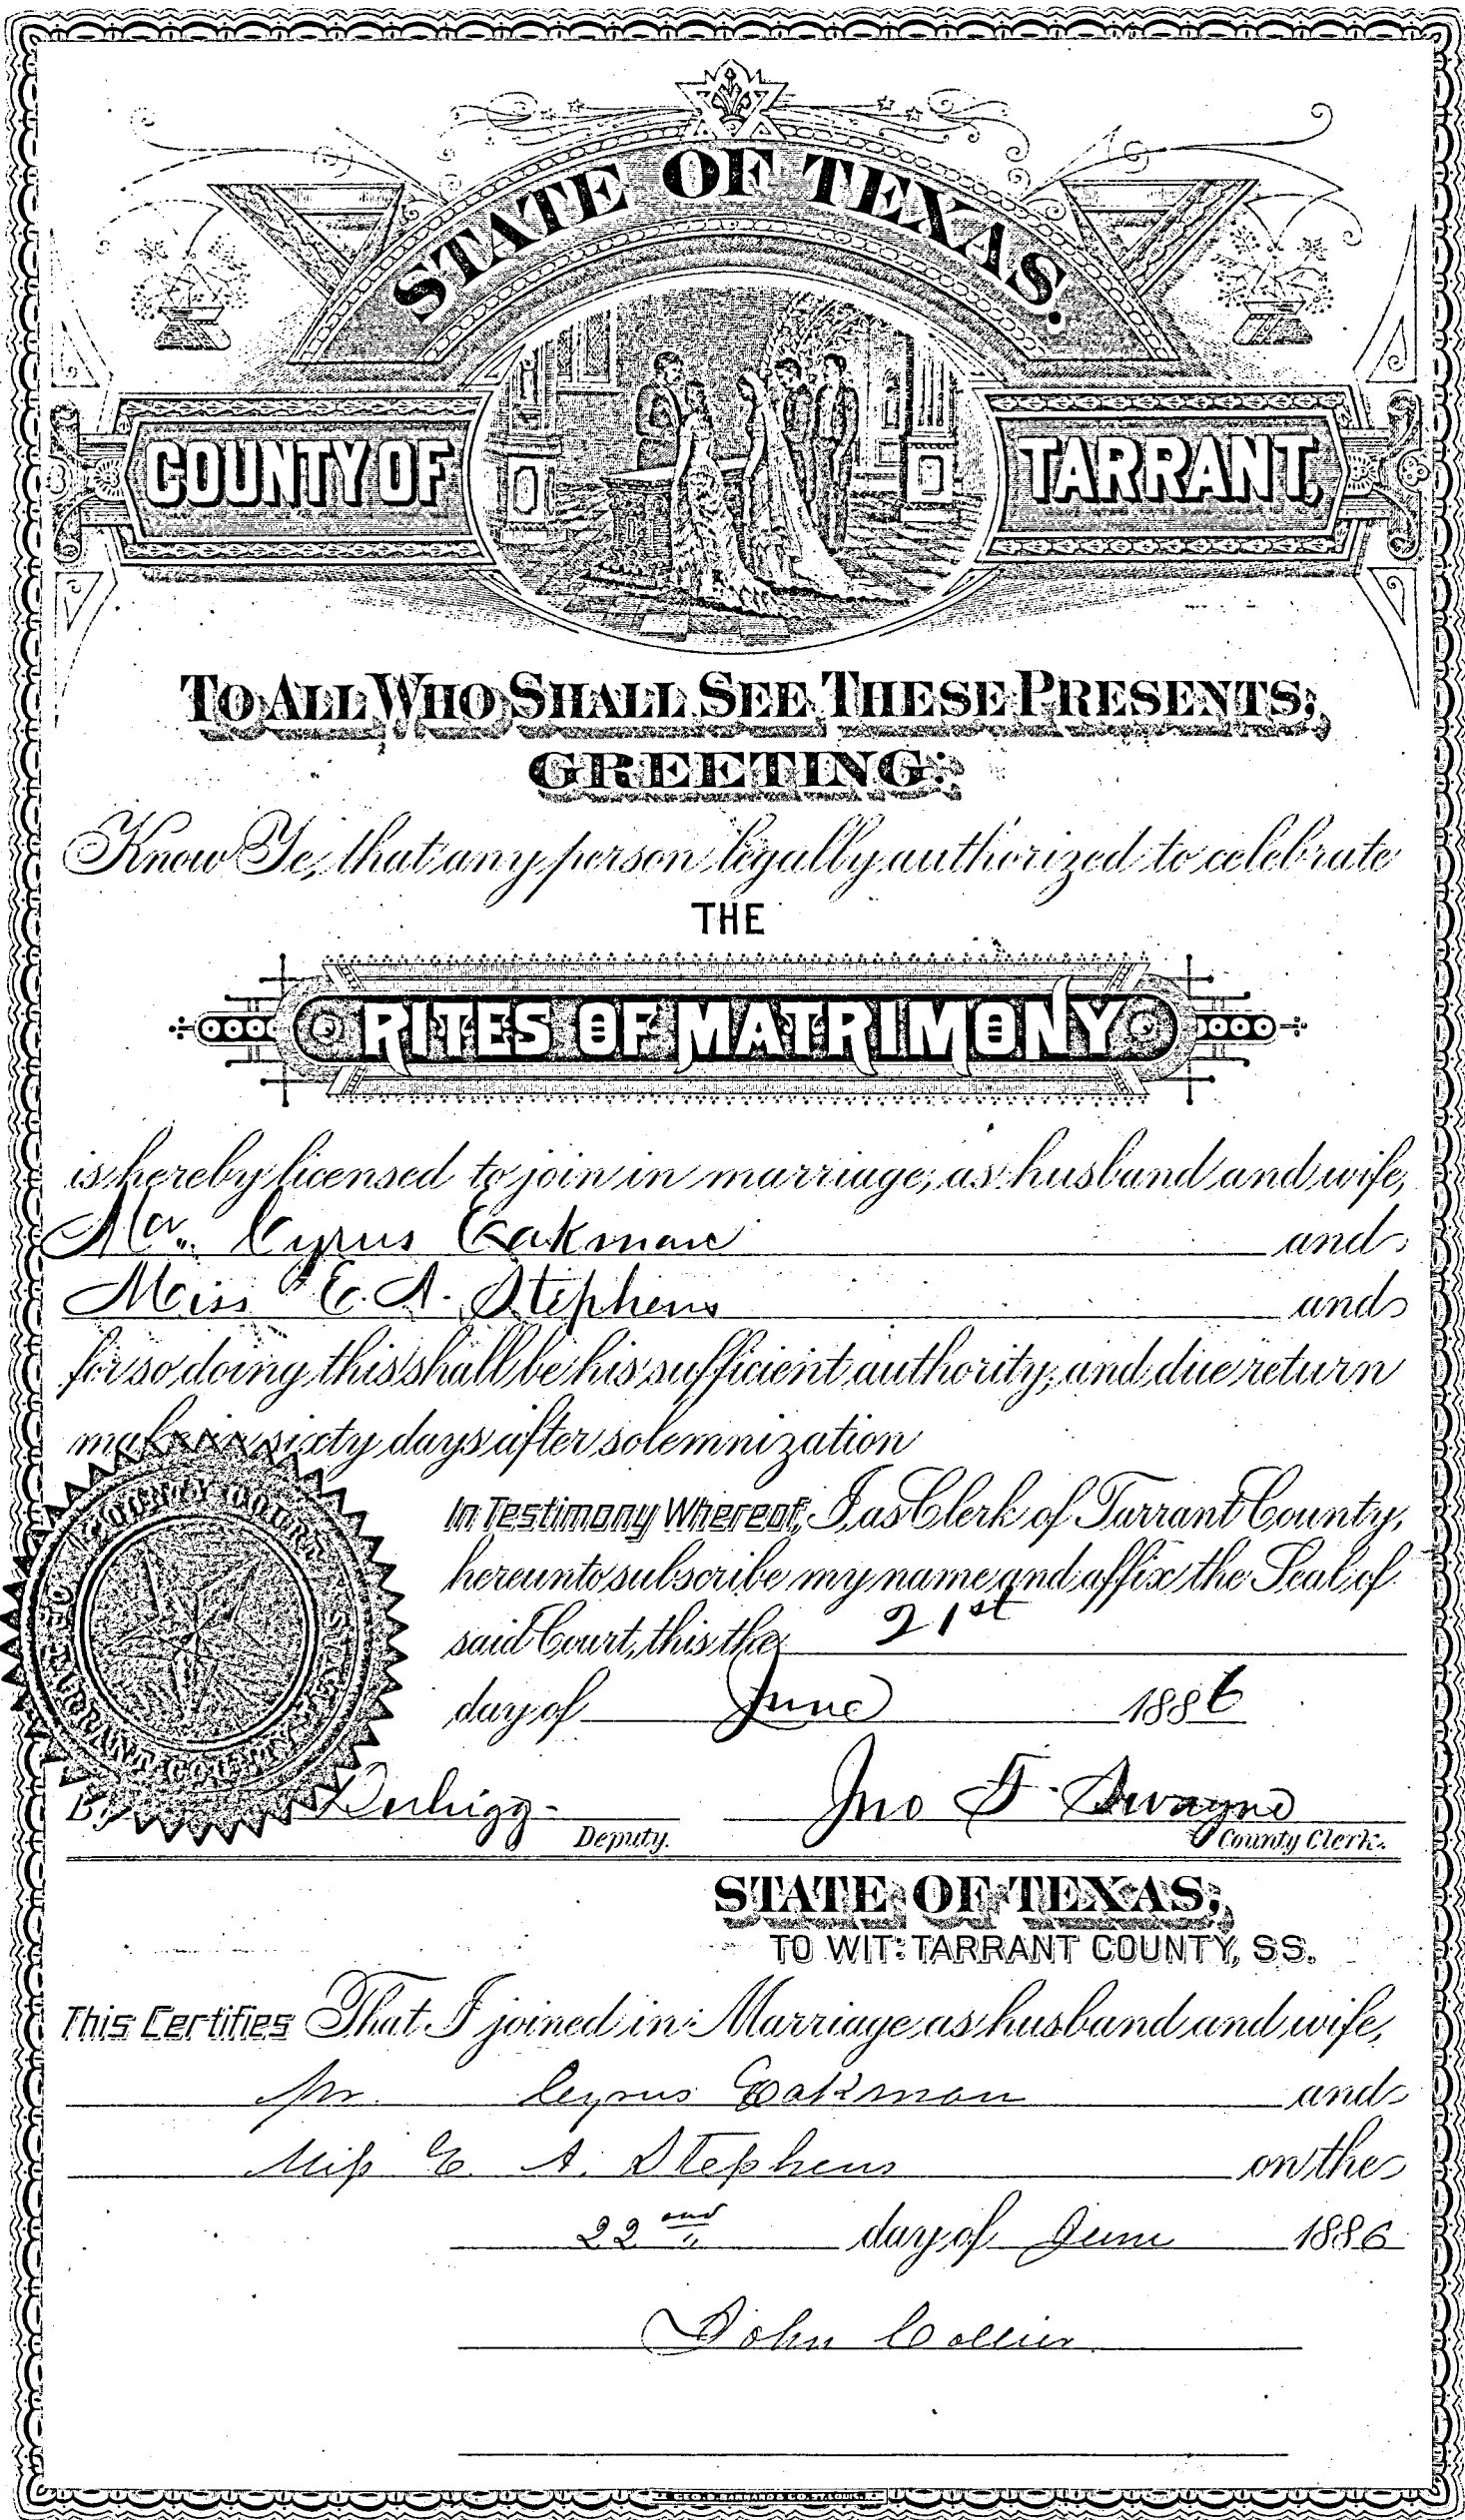 STATE OF TEXAS.
COUNTY OF TARRANT,
TO ALL WHO SHALL SEE THESE PRESENTS,
GREETING:
Know Ye, that any person legally authorized to celebrate
THE
RITES OF MATRIMONY
is hereby licensed to join in marriage, as husband and wife,
Mr. Cyrus Eakman and
Miss E. A. Stephens and
for so doing this shall be his sufficient authority, and due return
make in sixty days after solemnization
In Testimony Whereof, I, as Clerk of Tarrant County,
hereunto subscribe my name and affix the Seal of
said Court, this the 21st
day of June 1886
COUNTY COURT
TARRANT COUNTY
By Duhigg. Jno F. Swayne
Deputy. County Clerk.
STATE OF TEXAS,
TO WIT: TARRANT COUNTY, SS.
This Certifies That I joined in Marriage as husband and wife,
Mr. Cyrus Eakman and
Miss E. A. Stephens on the
22nd day of June 1886
John Collier
GEO. D. BARNARD & CO. ST. LOUIS.